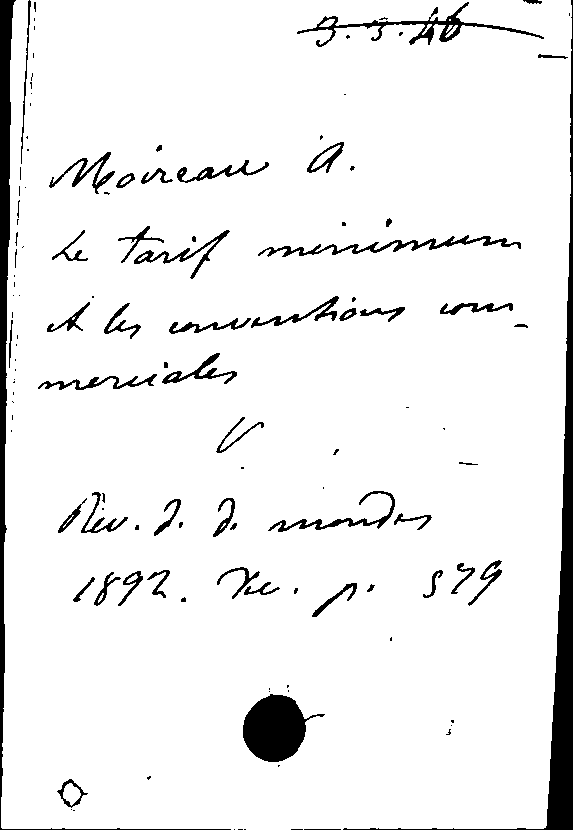 3.3.46
Moireau A.
Le tarif minimum
et les conventions com-
merciales
V
Rev. d. d. mondes
1892. p. 579